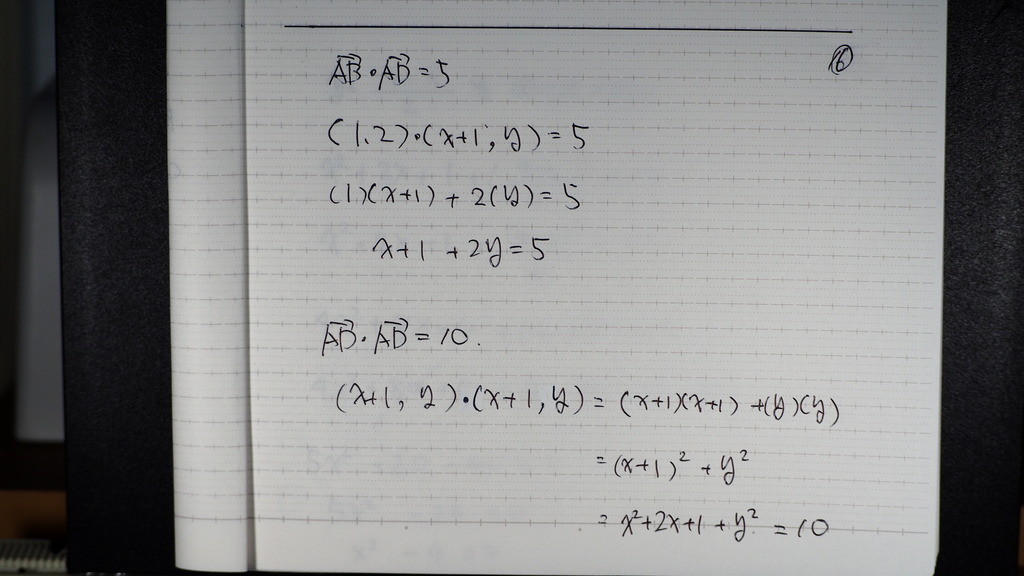 ⑥
$\overrightarrow{AB} \cdot \overrightarrow{AD} = 5$
$(1, 2) \cdot (x+1, y) = 5$
$(1)(x+1) + 2(y) = 5$
$x+1 + 2y = 5$
$\overrightarrow{AD} \cdot \overrightarrow{AD} = 10.$
$(x+1, y) \cdot (x+1, y) = (x+1)(x+1) + (y)(y)$
$= (x+1)^2 + y^2$
$= x^2 + 2x + 1 + y^2 = 10$